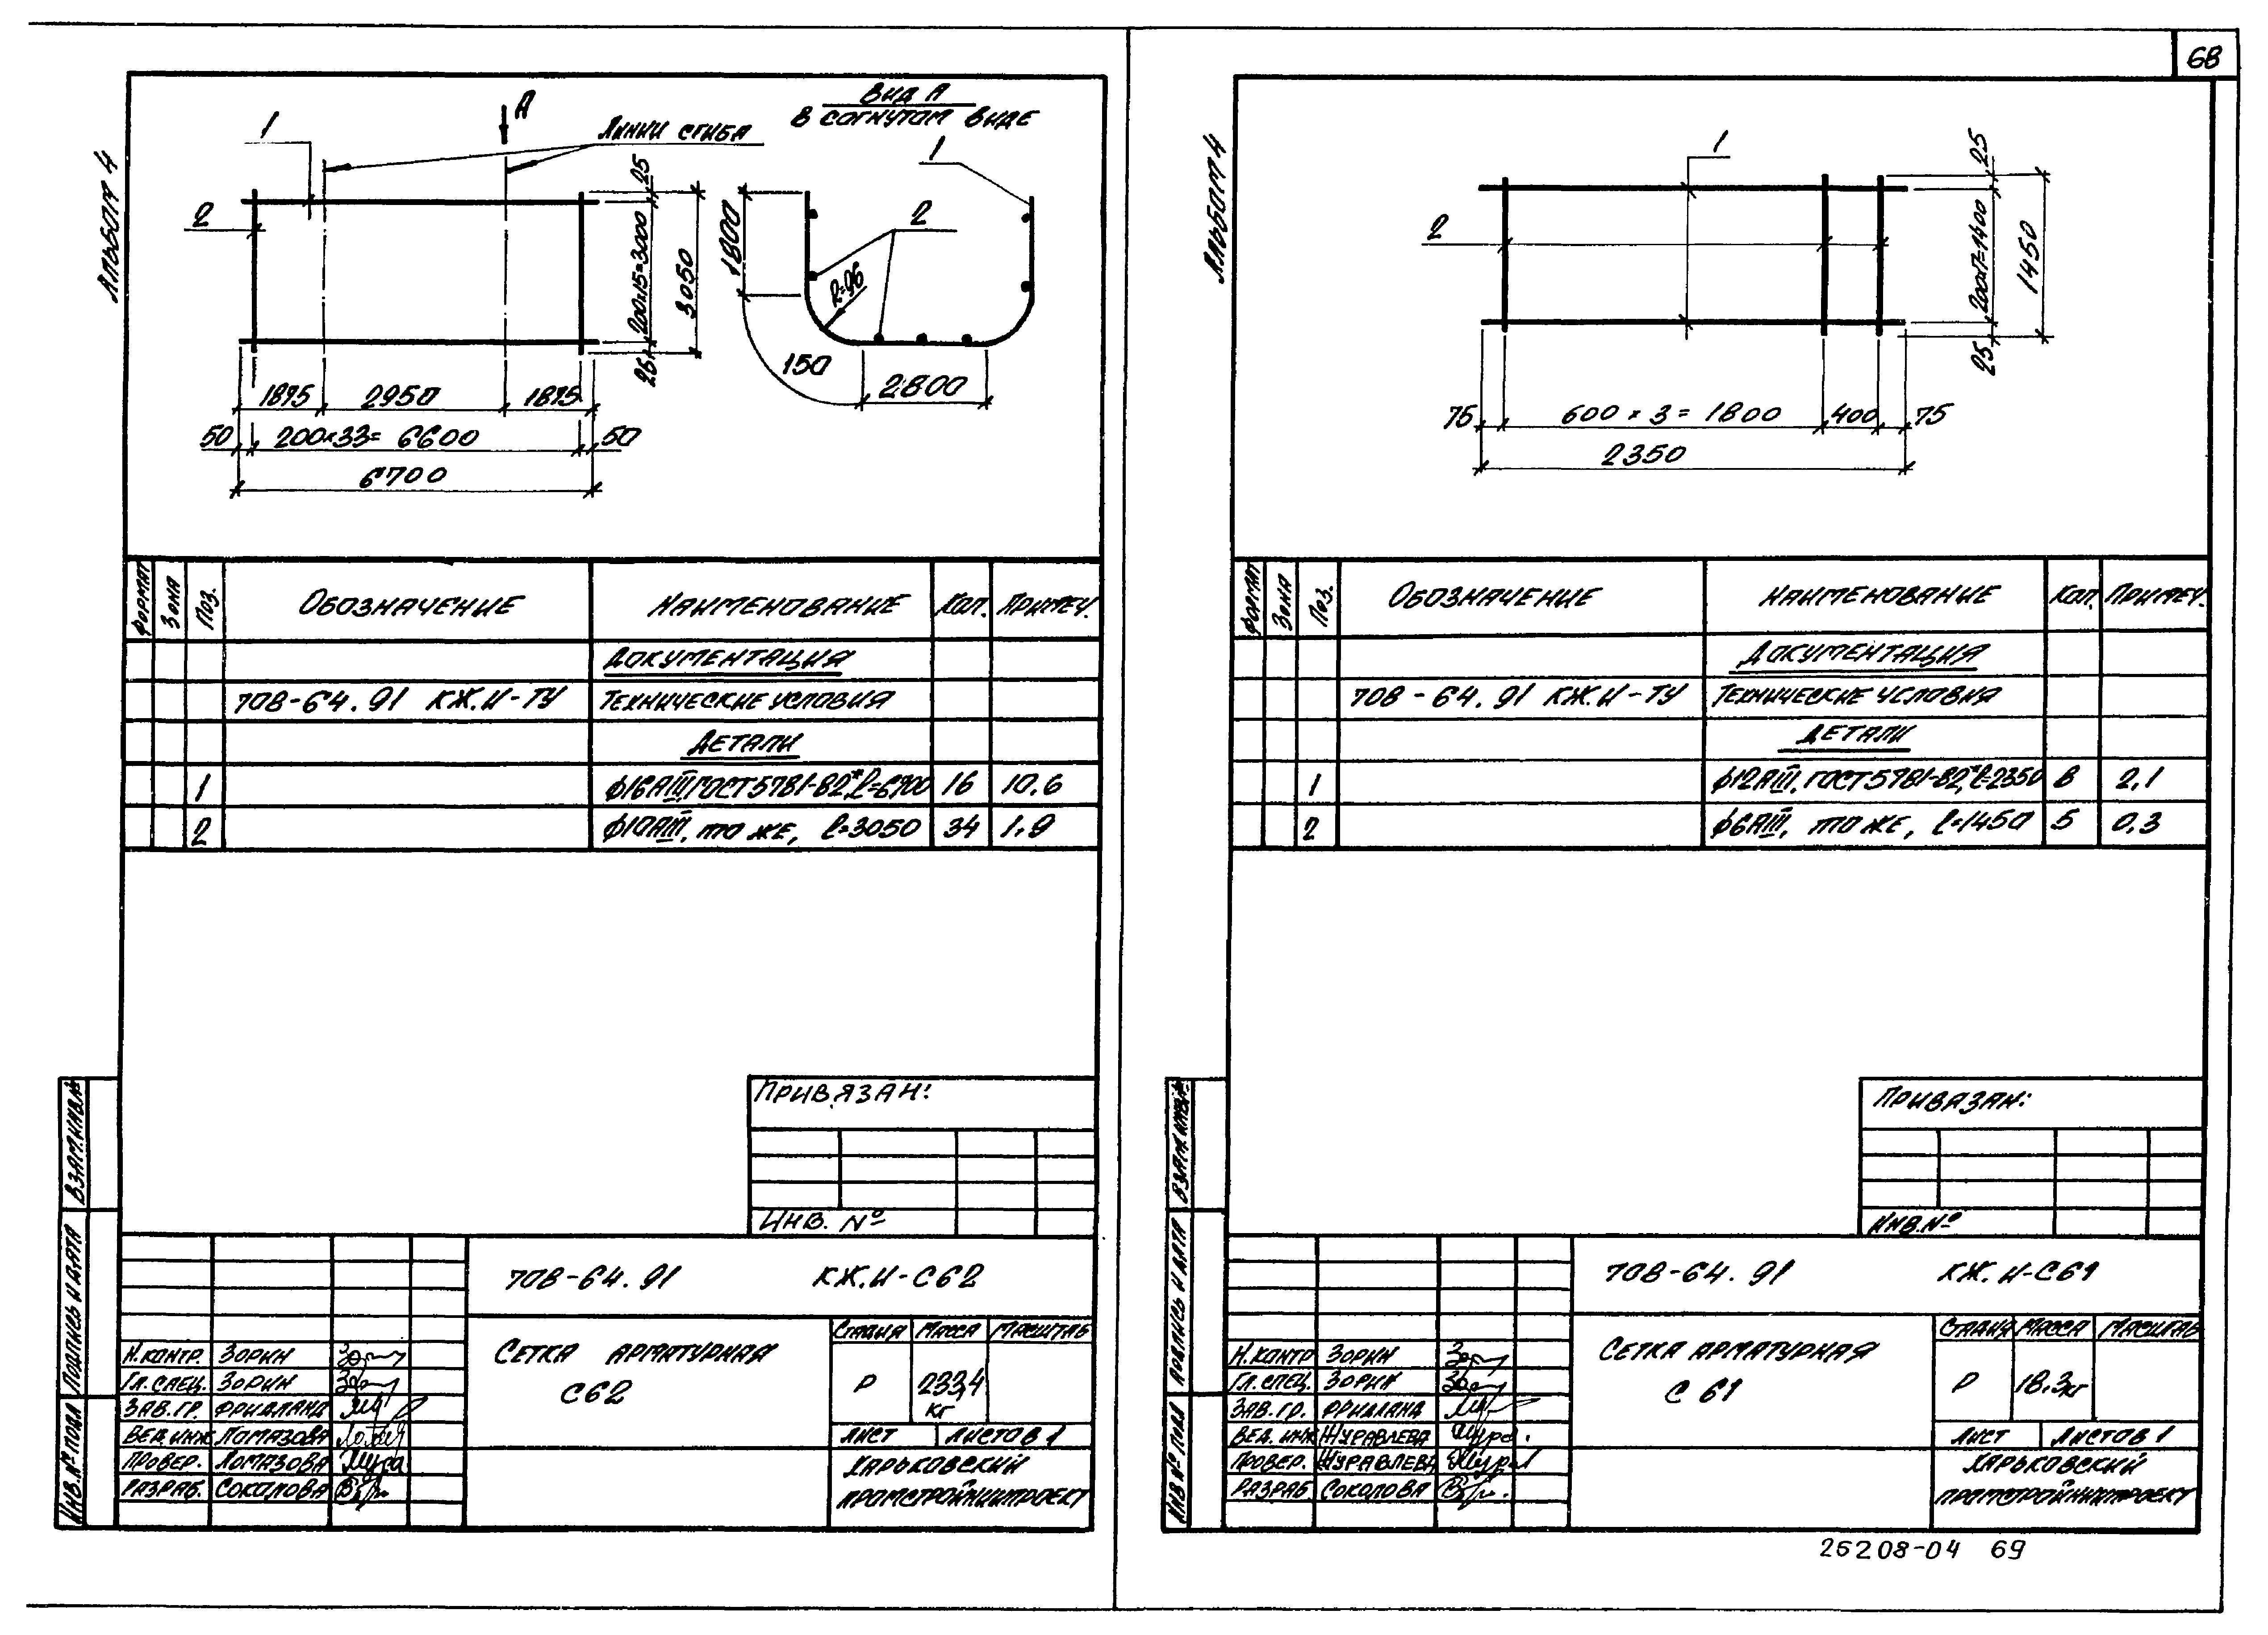 68
Альбом 4
1
2
А
Линии сгиба
Вид А
в согнутом виде
25
200×15=3000
3050
25
1875
2950
1875
50
200×33=6600
50
6700
1
2
1800
R=96
150
2800
Формат
Зона
Поз.
Обозначение
Наименование
Кол.
Примеч.
Документация
708-64.91 КЖ.И-ТУ
Технические условия
Детали
1
ф16АIII, ГОСТ 5781-82*, ℓ=6700
16
10,6
2
ф10АIII, то же, ℓ=3050
34
1,9
Привязан:
Инв. №
Взам. инв. №
Подпись и дата
Инв. № подл
708-64.91 КЖ.И-С62
Н.контр. Зорин
Гл. спец. Зорин
Зав. гр. Фридланд
Вед. инж Ломазова
Провер. Ломазова
Разраб. Соколова
Сетка арматурная
С62
Стадия
Масса
Масштаб
Р
233,4
кг
Лист
Листов 1
Харьковский
Промстройниипроект
Альбом 4
1
2
25
200×7=1400
1450
25
75
600 × 3 = 1800
400
75
2350
Формат
Зона
Поз.
Обозначение
Наименование
Кол.
Примеч.
Документация
708-64.91 КЖ.И-ТУ
Технические условия
Детали
1
ф12АIII, ГОСТ 5781-82*, ℓ=2350
8
2,1
2
ф6АIII, то же, ℓ=1450
5
0,3
Привязан:
Инв. №
Взам. инв. №
Подпись и дата
Инв. № подл
708-64.91 КЖ.И-С61
Н.контр Зорин
Гл. спец. Зорин
Зав. гр. Фридланд
Вед. инж Журавлева
Провер. Журавлева
Разраб Соколова
Сетка арматурная
С 61
Стадия
Масса
Масштаб
Р
18.3кг
Лист
Листов 1
Харьковский
Промстройниипроект
26208-04 69